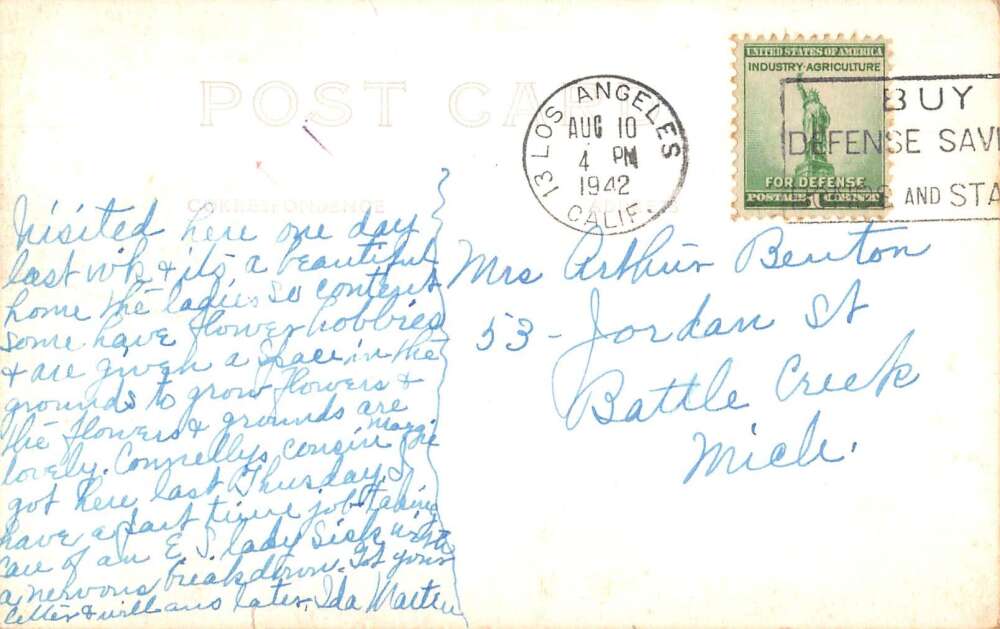 POST CARD
CORRESPONDENCE
ADDRESS
13 LOS ANGELES CALIF.
AUG 10
4 PM
1942
UNITED STATES OF AMERICA
INDUSTRY·AGRICULTURE
FOR DEFENSE
POSTAGE 1 CENT
BUY
DEFENSE SAVI
BONDS AND STA
Visited here one day
last wk & its a beautiful
home the ladies so content
some have flower hobbies
& are given a space in the
grounds to grow flowers &
the flowers & grounds are
lovely. Connellys cousin
got here last Thursday. I
have a part time job taking
care of an E.S. lady Sick with
a nervous breakdown. Got your
letter & will ans later. Ida
Mrs Arthur Benton
53 - Jordan St
Battle Creek
Mich.